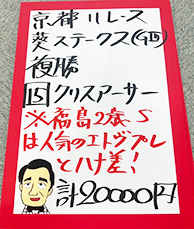 京都11レース
葵ステークス(GⅢ)
複勝
15 クリスアーサー
※福島2歳S
は人気のエトヴプレ
とハナ差!
計20000円